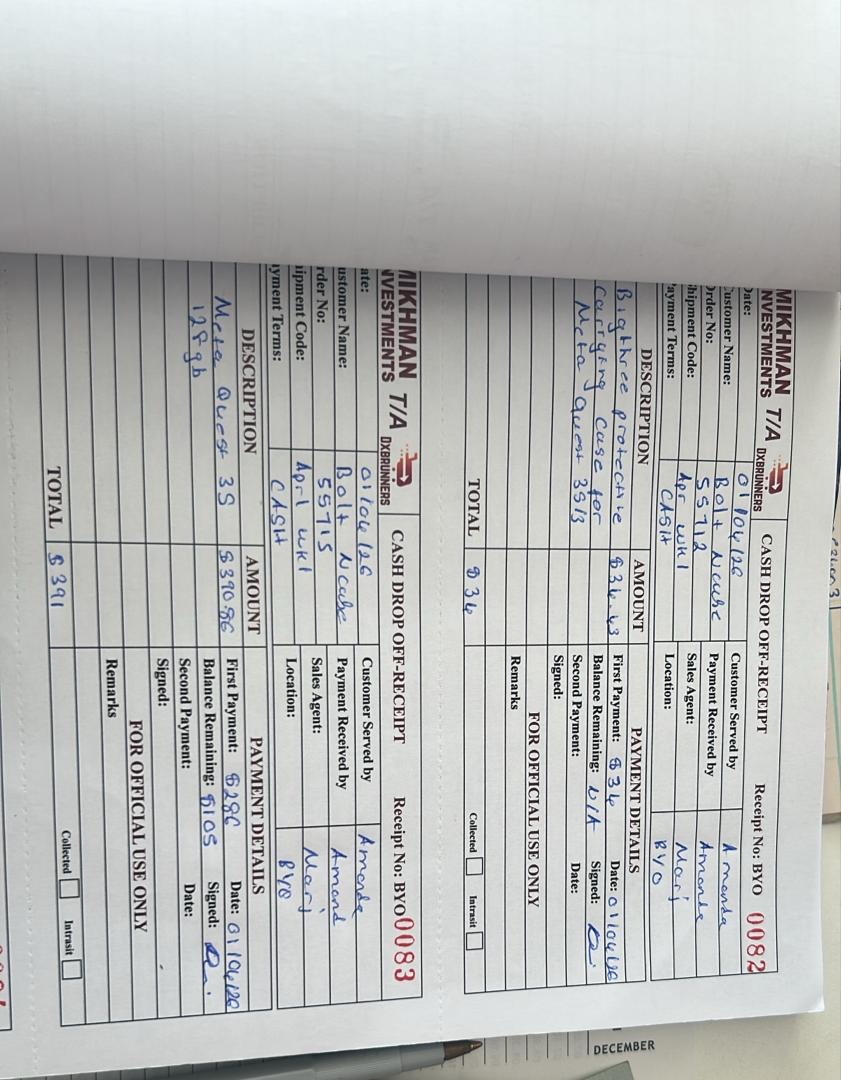 MIKHMAN
NVESTMENTS T/A DXBRUNNERS CASH DROP OFF-RECEIPT Receipt No: BYO 0082
Date: 01/04/26 Customer Served by Amanda
ustomer Name: Bolt Ncube Payment Received by Amanda
Order No: 55712 Sales Agent: Marj
hipment Code: Apr wk1 Location: BYO
ayment Terms: CASH
DESCRIPTION AMOUNT PAYMENT DETAILS
Bigthree protective $34.43 First Payment: $34 Date: 01/04/26
carrying case for Balance Remaining: N/A Signed:
Meta quest 3S/3 Second Payment: Date:
Signed:
FOR OFFICIAL USE ONLY
Remarks
TOTAL $34 Collected Intrasit
MIKHMAN
NVESTMENTS T/A DXBRUNNERS CASH DROP OFF-RECEIPT Receipt No: BYO 0083
ate: 01/04/26 Customer Served by Amanda
ustomer Name: Bolt Ncube Payment Received by Amand
rder No: 55715 Sales Agent: Marj
hipment Code: Apr1 wk1 Location: BYO
yment Terms: CASH
DESCRIPTION AMOUNT PAYMENT DETAILS
Meta Quest 3S $390.86 First Payment: $286 Date: 01/04/26
128gb Balance Remaining: $105 Signed:
Second Payment: Date:
Signed:
FOR OFFICIAL USE ONLY
Remarks
TOTAL $391 Collected Intrasit
DECEMBER